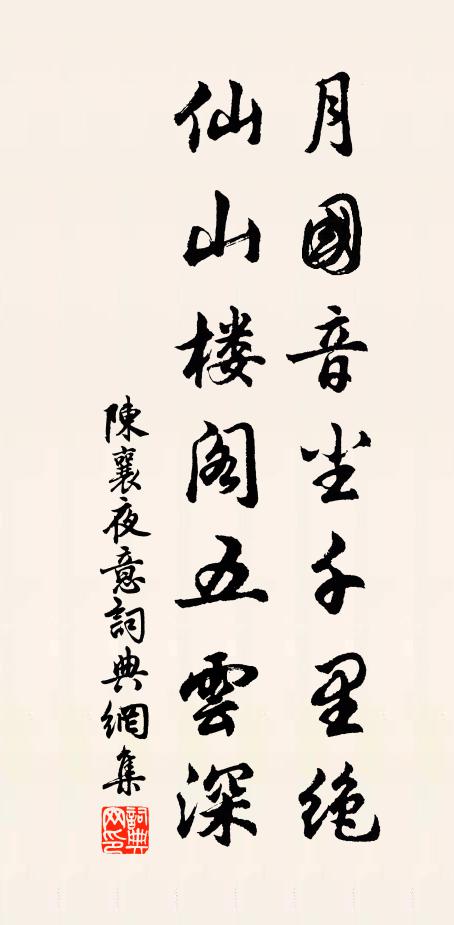 月國音尘千里绝
仙山楼阁五雲深
陳襄夜意詞典網集
詞典网印